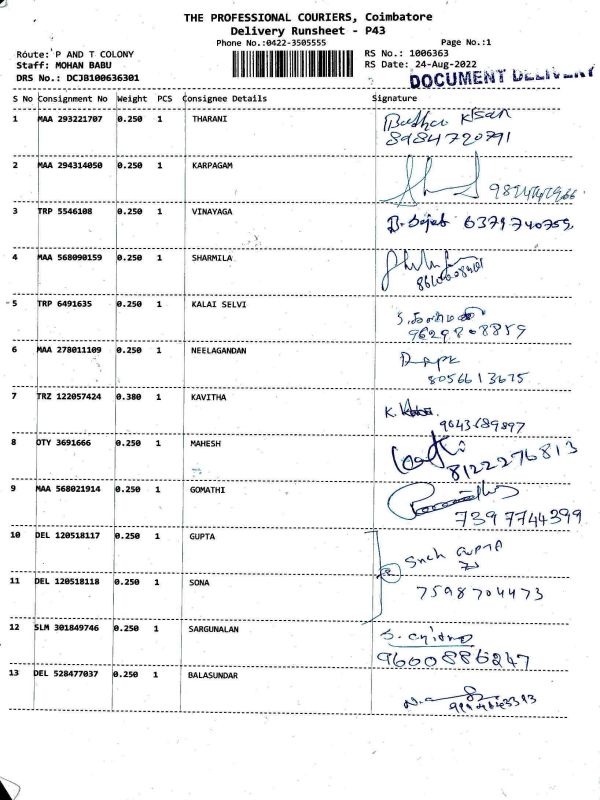 THE PROFESSIONAL COURIERS, Coimbatore
Delivery Runsheet - P43
Phone No.:0422-3505555
Page No.:1
Route: P AND T COLONY
RS No.: 1006363
Staff: MOHAN BABU
RS Date: 24-Aug-2022
DRS No.: DCJB100636301
DOCUMENT DELIVERY
S No Consignment No Weight PCS Consignee Details Signature
1 MAA 293221707 0.250 1 THARANI
8984720791
2 MAA 294314050 0.250 1 KARPAGAM
3 TRP 5546108 0.250 1 VINAYAGA 6379740759
4 MAA 568090159 0.250 1 SHARMILA
5 TRP 6491635 0.250 1 KALAI SELVI
9629808859
6 MAA 278011109 0.250 1 NEELAGANDAN
8056613675
7 TRZ 122057424 0.380 1 KAVITHA K.
9043689897
8 OTY 3691666 0.250 1 MAHESH
8122276813
9 MAA 568021914 0.250 1 GOMATHI
7397744399
10 DEL 120518117 0.250 1 GUPTA
GUPTA
11 DEL 120518118 0.250 1 SONA
7598704473
12 SLM 301849746 0.250 1 SARGUNALAN
9600886247
13 DEL 528477037 0.250 1 BALASUNDAR